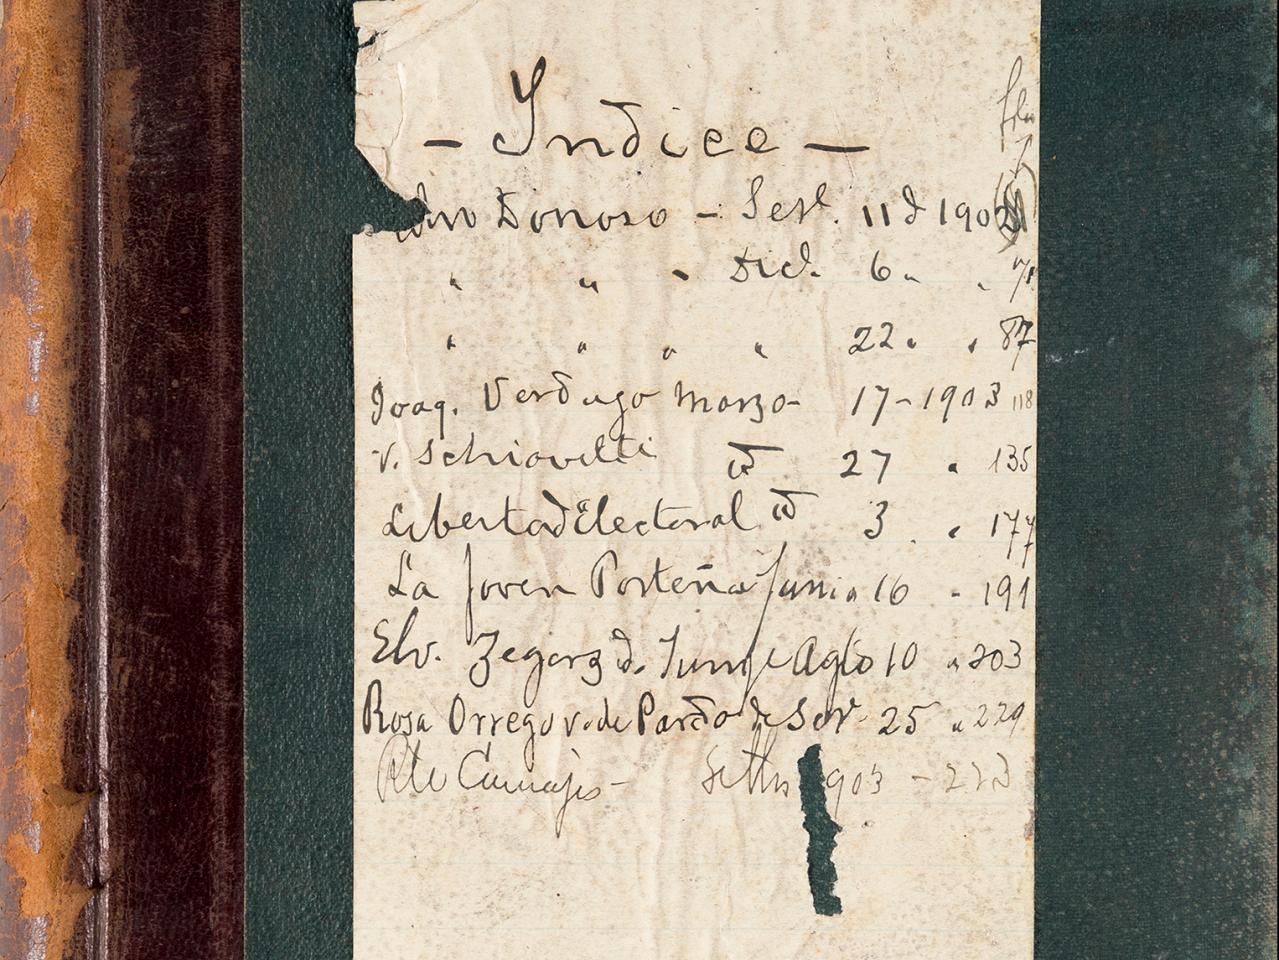 - Indice -
Donoso - Set. 11 d 190
" " - Dic. 6 " "
" " " " 22 " " 87
Joaq. Verdugo Marzo - 17 - 1903 118
V. Schiavetti id 27 " 135
Libertad Electoral id 3 . " 177
La Joven Porteña Junio 16 - 191
Elv. Zegarz d. Agto 10 " 203
Rosa Orrego v. de Pardo Set. 25 " 229
903 -